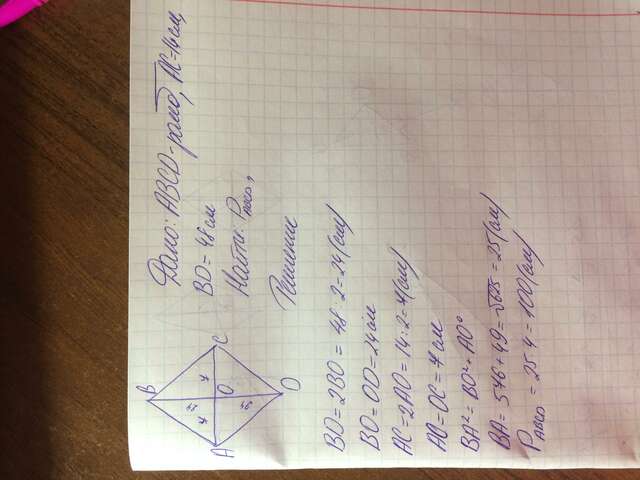 Дано: ABCD-ромб, AC=14см,
BD=48см
Найти: P ABCD,
Решение
B
A
C
O
D
7
7
BD=2BO=48:2=24(см)
BO=OD=24см
AC=2AO=14:2=7(см)
AO=OC=7см
BA²=BO²+AO²
BA=576+49=√625=25(см)
P ABCD=25·4=100(см)